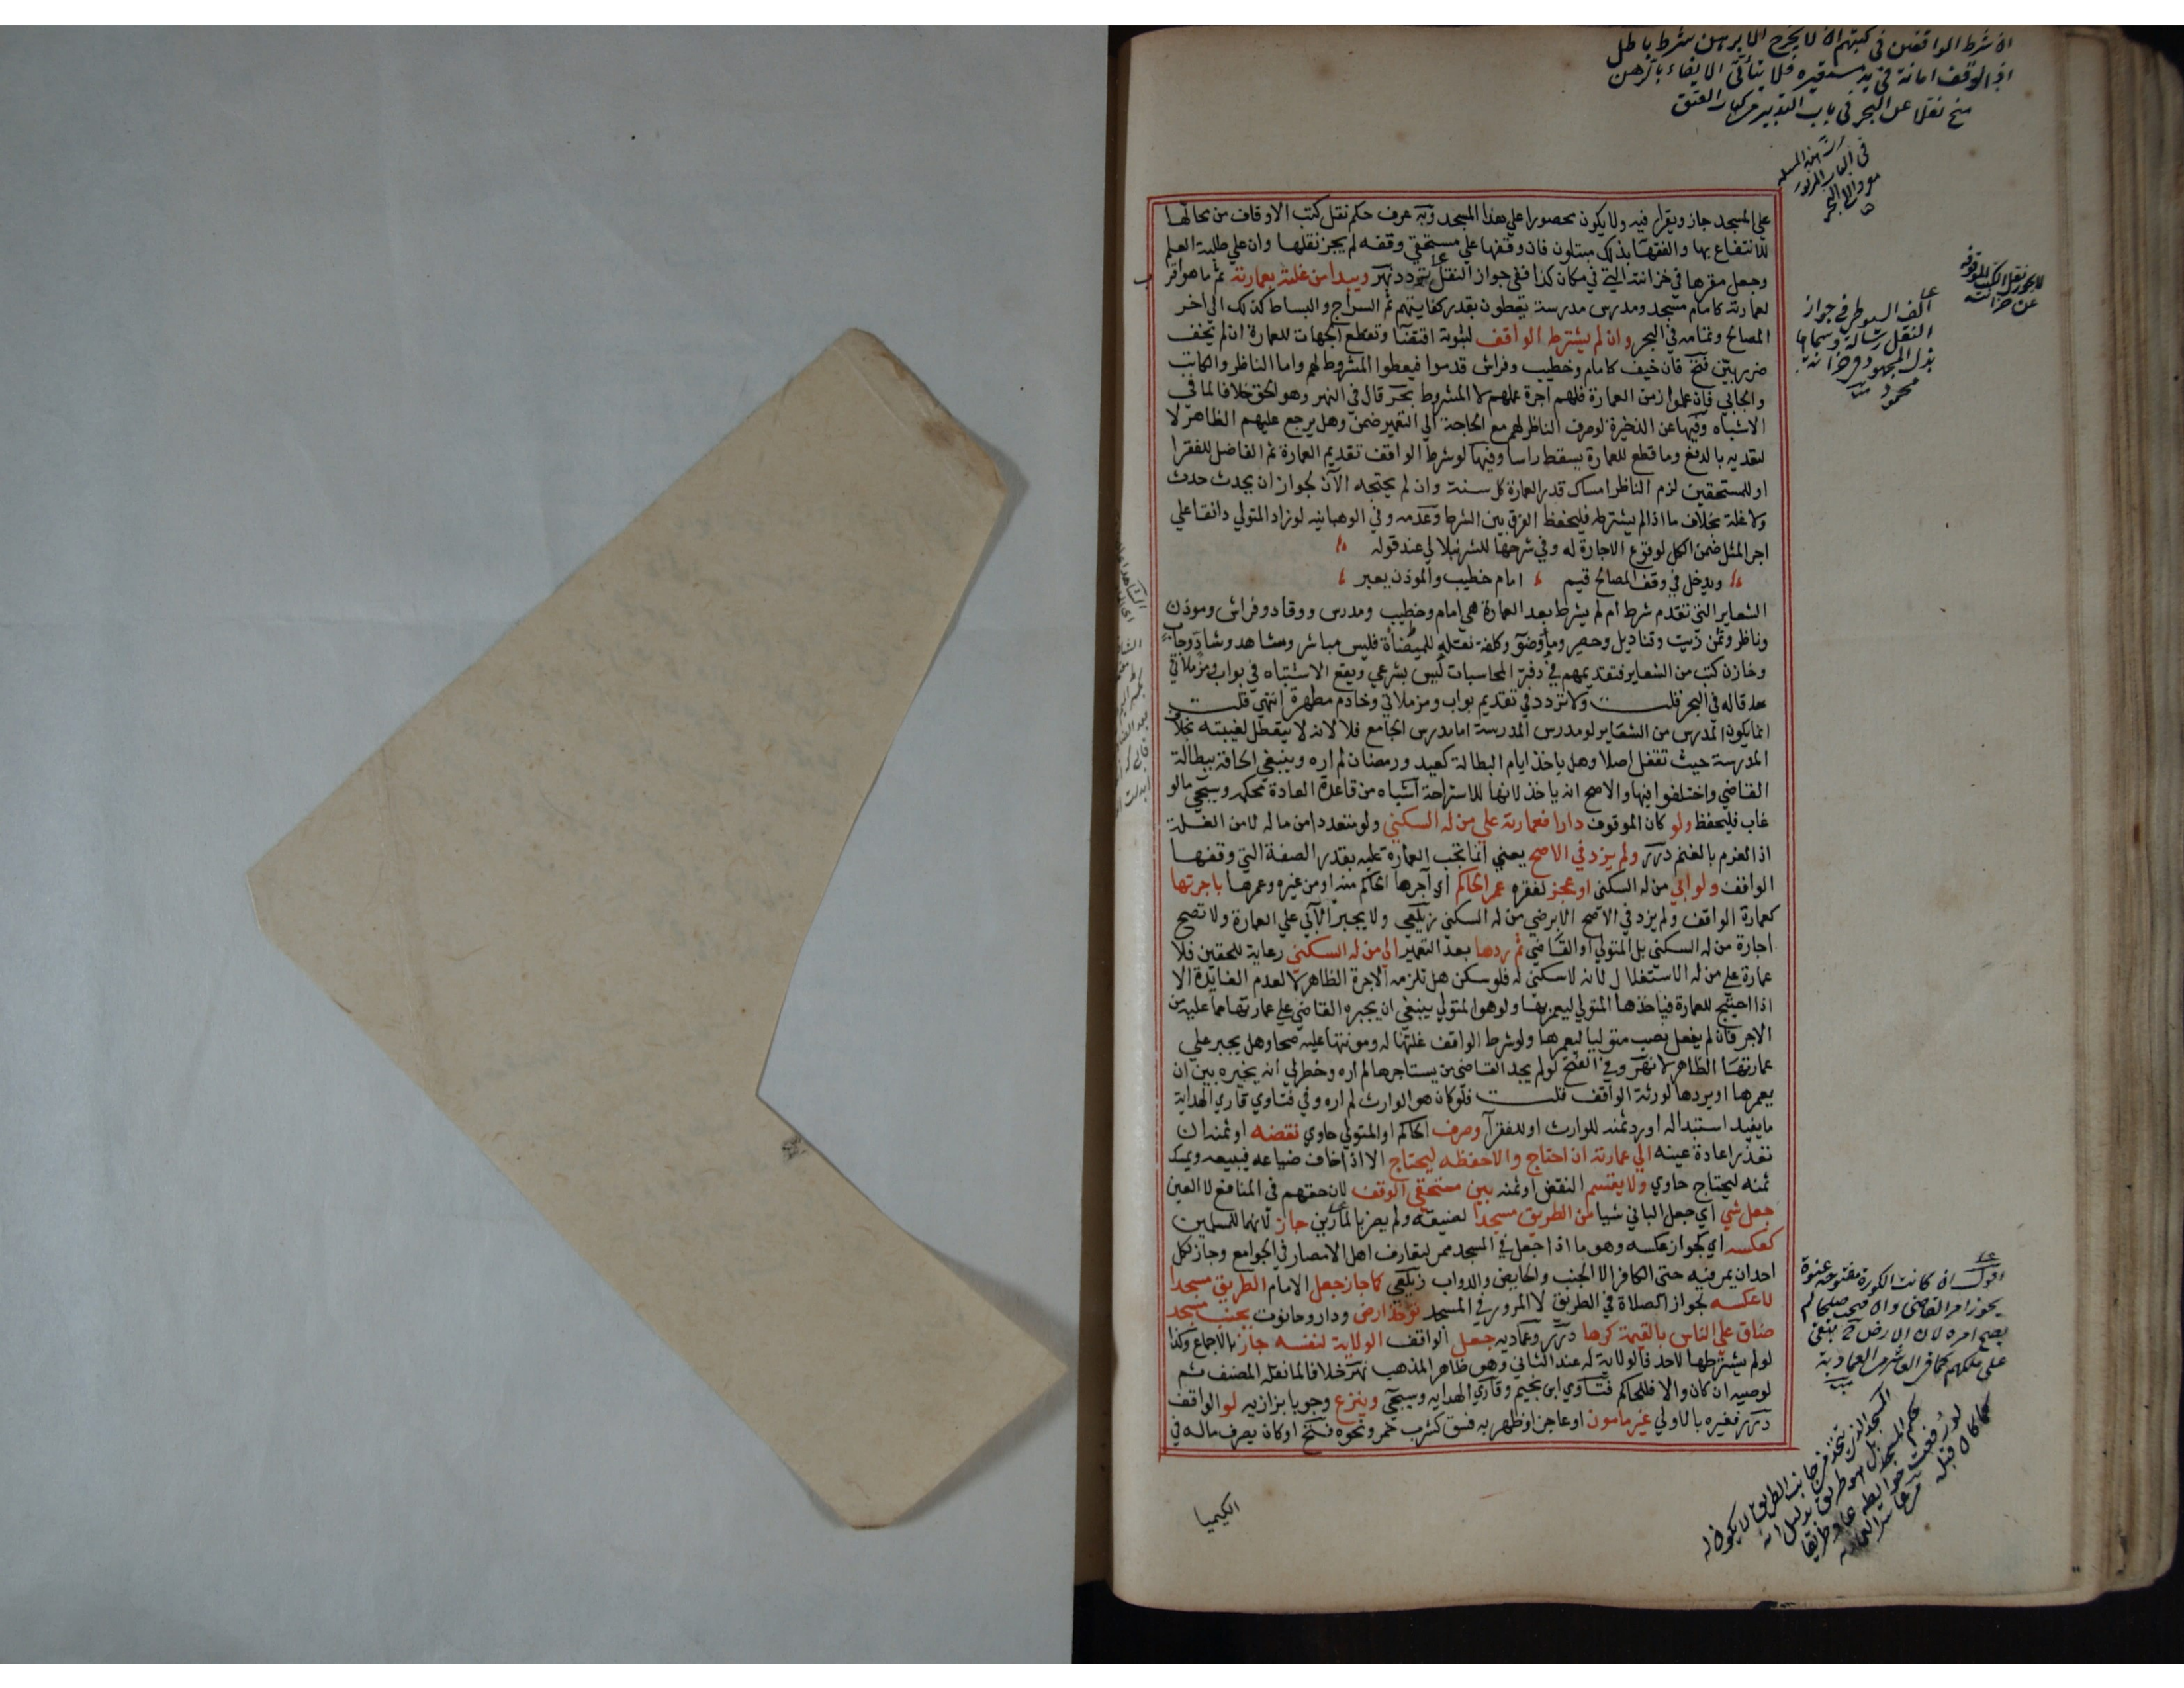 ان شرط الواقفين في كتبهم ان لا يخرج الا برهن شرط باطل
اذ الوقف امانة في يد مستعيره فلا يتأتى الايفاء بالرهن
منح نقلا عن البحر في باب التدبير من كتاب العتق
على المسجد جاز ويقرأ فيه ولا يكون محصورا على هذا المسجد وبه عرف حكم نقل كتب الاوقاف من محالها
للانتفاع بها والفقها بذلك مبتلون فان وقفها على مستحقي وقفه لم يجز نقلها وان على طلبة العلم
وجعل مقرها في خزانته التي في مكان كذا ففي جواز النقل تردد نهر ويبدا من غلته بعمارته ثم ما هو اقرب
لعمارته كامام مسجد ومدرس مدرسة يعطون بقدر كفايتهم ثم السراج والبساط كذلك الى اخر
المصالح وتمامه في البحر وان لم يشترط الواقف لثبوته اقتضا وتقطع الجهات للعمارة ان لم يخف
ضرر بين فتح فان خيف كامام وخطيب وفراش قدموا فيعطوا المشروط لهم واما الناظر والكاتب
والجابي فان عملوا زمن العمارة فلهم اجرة عملهم لا المشروط بحر قال في النهر وهو الحق خلافا لما في
الاشباه وفيها عن الذخيرة لو صرف الناظر لهم مع الحاجة الى التعمير ضمن وهل يرجع عليهم الظاهر لا
لتعديه بالدفع وما قطع للعمارة يسقط راسا وفيها لو شرط الواقف تقديم العمارة ثم الفاضل للفقرا
او للمستحقين لزم الناظر امساك قدر العمارة كل سنة وان لم يحتجه الآن لجواز ان يحدث حدث
ولا غلة بخلاف ما اذا لم يشترطه فليحفظ الفرق بين الشرط وعدمه وفي الوهبانيه لو زاد المتولي دانقا على
اجر المثل ضمن الكل لوقوع الاجارة له وفي شرحها للشرنبلالي عند قوله
ويدخل في وقف المصالح قيم امام خطيب والموذن يعبر
الشعاير التي تقدم شرط ام لم يشرط بعد العمارة هي امام وخطيب ومدرس ووقاد وفراش وموذن
وناظر وثمن زيت وقناديل وحصر وما وضو وكلفة نقله للميضأة فليس مباشر وشاهد وشاد وجاب
وخازن كتب من الشعاير فتقديمهم في دفتر المحاسبات ليس بشرعي ويقع الاشتباه في بواب ومزملاتي
قاله في البحر قلت ولا تردد في تقديم بواب ومزملاتي وخادم مطهرة انتهى قلت
انما يكون المدرس من الشعاير لو مدرس المدرسة اما مدرس الجامع فلا لانه لا يتعطل لغيبته بخلاف
المدرسة حيث تقفل اصلا وهل ياخذ ايام البطالة كعيد ورمضان لم اره وينبغي الحاقه ببطالة
القاضي واختلفوا فيها والاصح انه ياخذ لانها للاستراحة اشباه من قاعدة العادة محكمه وسيجي مالو
غاب فليحفظ ولو كان الموقوف دارا فعمارته على من له السكنى ولو متعددا من ماله لا من الغلة
اذ الغرم بالغنم درر ولم يزد في الاصح يعني انما تجب العمارة عليه بقدر الصفة التي وقفها
الواقف ولو ابي من له السكنى او عجز لفقره عمر الحاكم اي آجرها الحاكم منه او من غيره وعمرها باجرتها
كعمارة الواقف ولم يزد في الاصح الا برضي من له السكنى زيلعي ولا يجبر الآبي على العمارة ولا تصح
اجارة من له السكنى بل المتولي او القاضي ثم ردها بعد التعمير الى من له السكنى رعاية للحقين فلا
عمارة على من له الاستغلال لانه لا سكنى له فلو سكن هل تلزمه الاجرة الظاهر لا لعدم الفايدة الا
اذا احتيج للعمارة فياخذها المتولي ليعمر بها ولو هو المتولي ينبغي ان يجبره القاضي على عمارتها مما عليه من
الاجر فان لم يفعل نصب متوليا ليعمرها ولو شرط الواقف غلتها له ومونتها عليه صحا وهل يجبر على
عمارتها الظاهر لا نهر وفي الفتح لو لم يجد القاضي من يستاجرها لم اره وخطر لي انه يخيره بين ان
يعمرها او يردها لورثة الواقف قلت فلو كان هو الوارث لم اره وفي فتاوي قاري الهداية
ما يفيد استبداله او رد ثمنه للوارث او للفقرآ وصرف الحاكم او المتولي حاوي نقضه او ثمنه ان
تعذر اعادة عينه الى عمارته ان احتاج والا حفظه ليحتاج الا اذا خاف ضياعه فيبيعه ويمسك
ثمنه ليحتاج حاوي ولا يقسم النقض او ثمنه بين مستحقي الوقف لان حقهم في المنافع لا العين
جعل شي اي جعل الباني شيا من الطريق مسجدا لضيقه ولم يضر بالمارين جاز لانهما للمسلمين
كعكسه اي كجواز عكسه وهو ما اذا جعل في المسجد ممر لتعارف اهل الامصار في الجوامع وجاز لكل
احد ان يمر فيه حتى الكافر الا الجنب والحايض والدواب زيلعي كما جاز جعل الامام الطريق مسجدا
لا عكسه لجواز الصلاة في الطريق لا المرور في المسجد توخذ ارض ودار وحانوت بجنب مسجد
ضاق على الناس بالقيمة كرها درر وعماديه جعل الواقف الولاية لنفسه جاز بالاجماع وكذا
لو لم يشترطها لاحد فالولاية له عند الثاني وهو ظاهر المذهب نهر خلافا لما نقله المصنف ثم
لوصيه ان كان والا فللحاكم فتاوي ابن نجيم وقاري الهدايه وسيجي وينزع وجوبا بزازيه لو الواقف
درر فغيره بالاولي غير مامون او عاجز او ظهر به فسق كشرب خمر ونحوه فتح او كان يصرف ماله في
الكيميا
لا يجوز نقل الكتب الموقوفة
عن خزانته
الف السيوطي في جواز
النقل رسالة وسماها
بذل المجهود في خزانة
محمود
اقول ان كانت الكورة مفتوحة عنوة
يجوز امر القاضي وان فتحت صلحا لم
يصح امره لان الارض تبقى
على ملكهم
المسجد الذي يتخذ من جانب الطريق لا يكون له
حكم المسجد بل هو طريق بدليل انه
لو رفعت حوائطه عاد طريقا
كما كان قبله